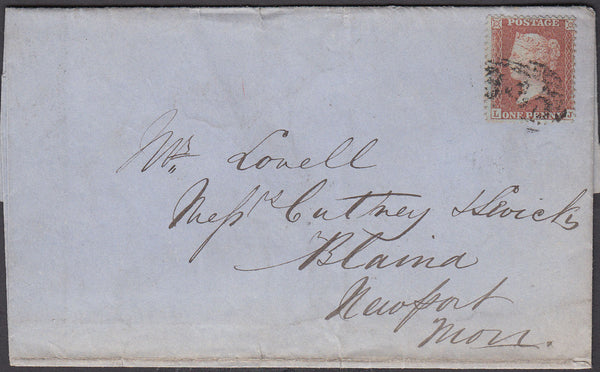 POSTAGE
L ONE PENNY J
Mrs Lovell
Messrs Cutney & Kewicks
Blaina
Newport
Mon.